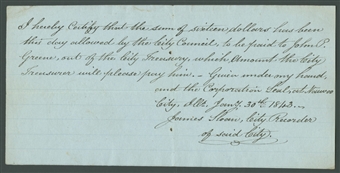 I hereby Certify that the sum of sixteen dollars has been
this day allowed by the City Council, to be paid to John P.
Greene, out of the City Treasury, which amount the City
Treasurer will please pay him. — Given under my hand,
and the Corporation Seal, at Nauvoo
City, Ills. Jany. 30th 1843.—
James Sloan, City Recorder
of said City.